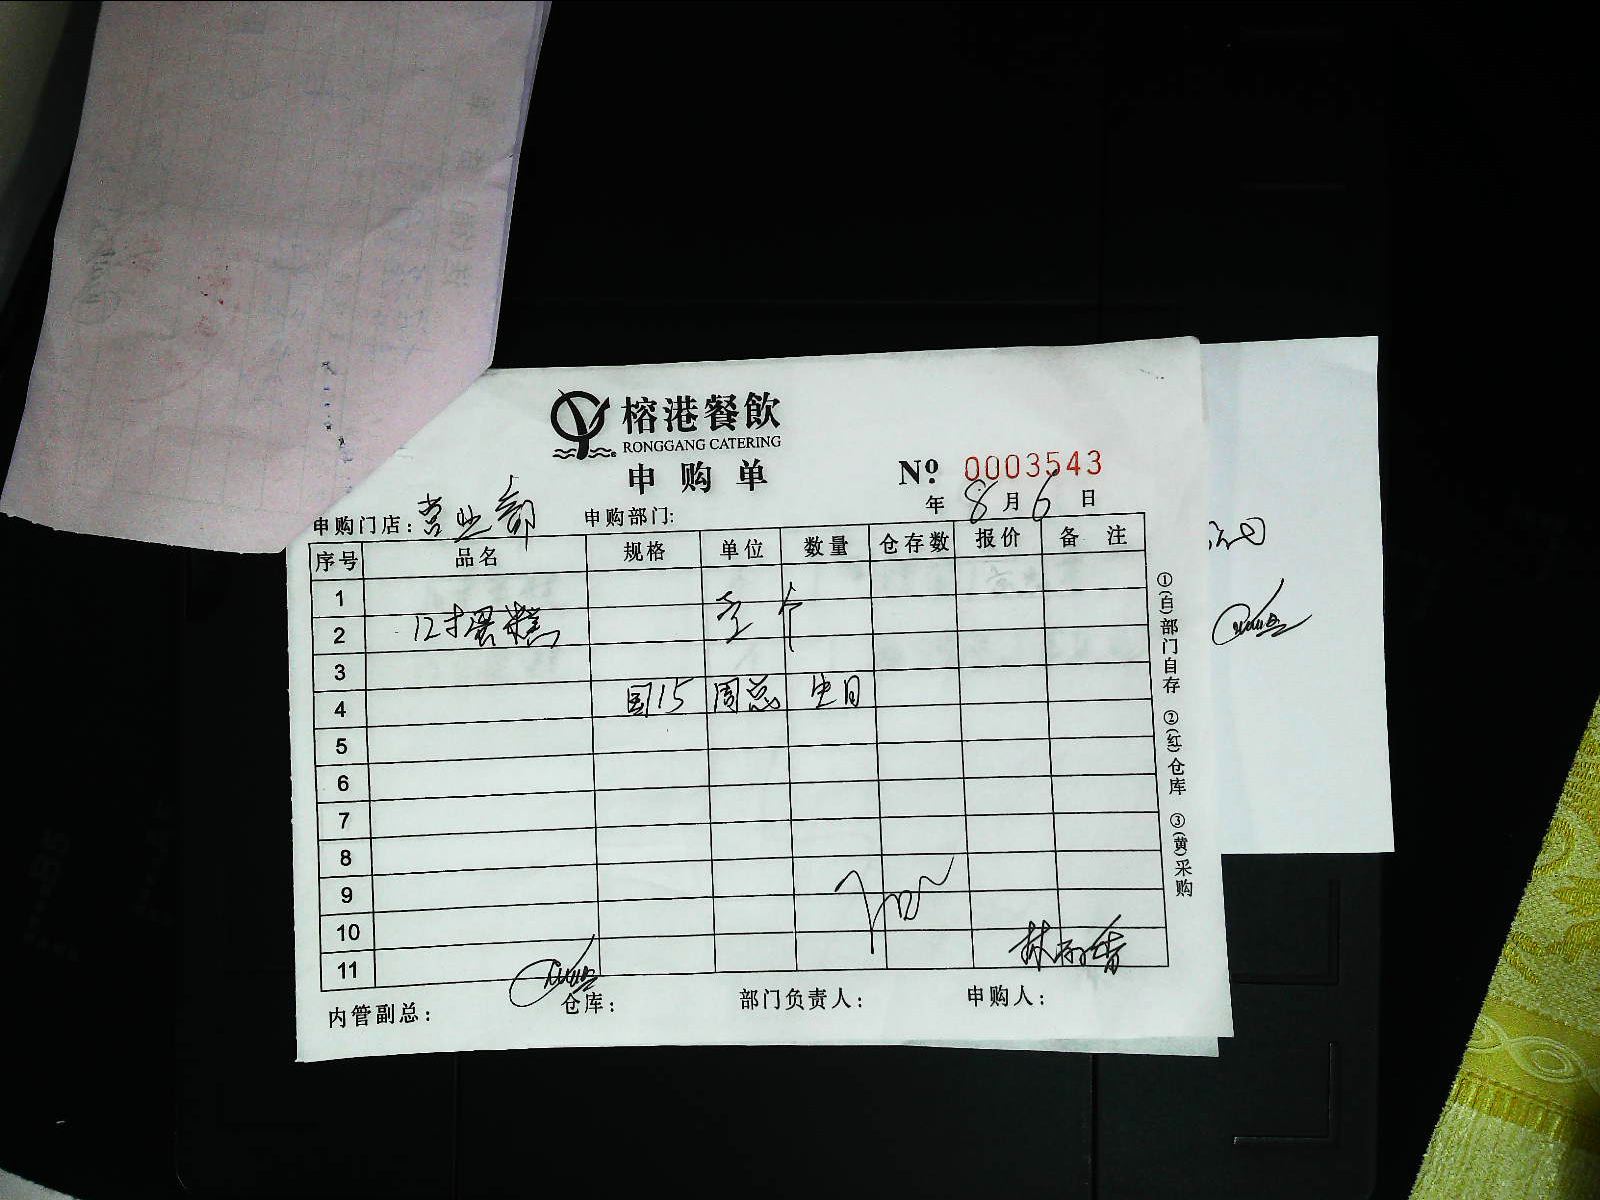 榕港餐飲
RONGGANG CATERING
申购单
Nº 0003543
年 8 月 6 日
申购门店: 营业部 申购部门:
序号 品名 规格 单位 数量 仓存数 报价 备 注
1
2 12寸蛋糕 壹 个
3
4 国15 周总 生日
5
6
7
8
9
10
11
内管副总: 仓库: 部门负责人: 申购人:
①(白)部门自存 ②(红)仓库 ③(黄)采购